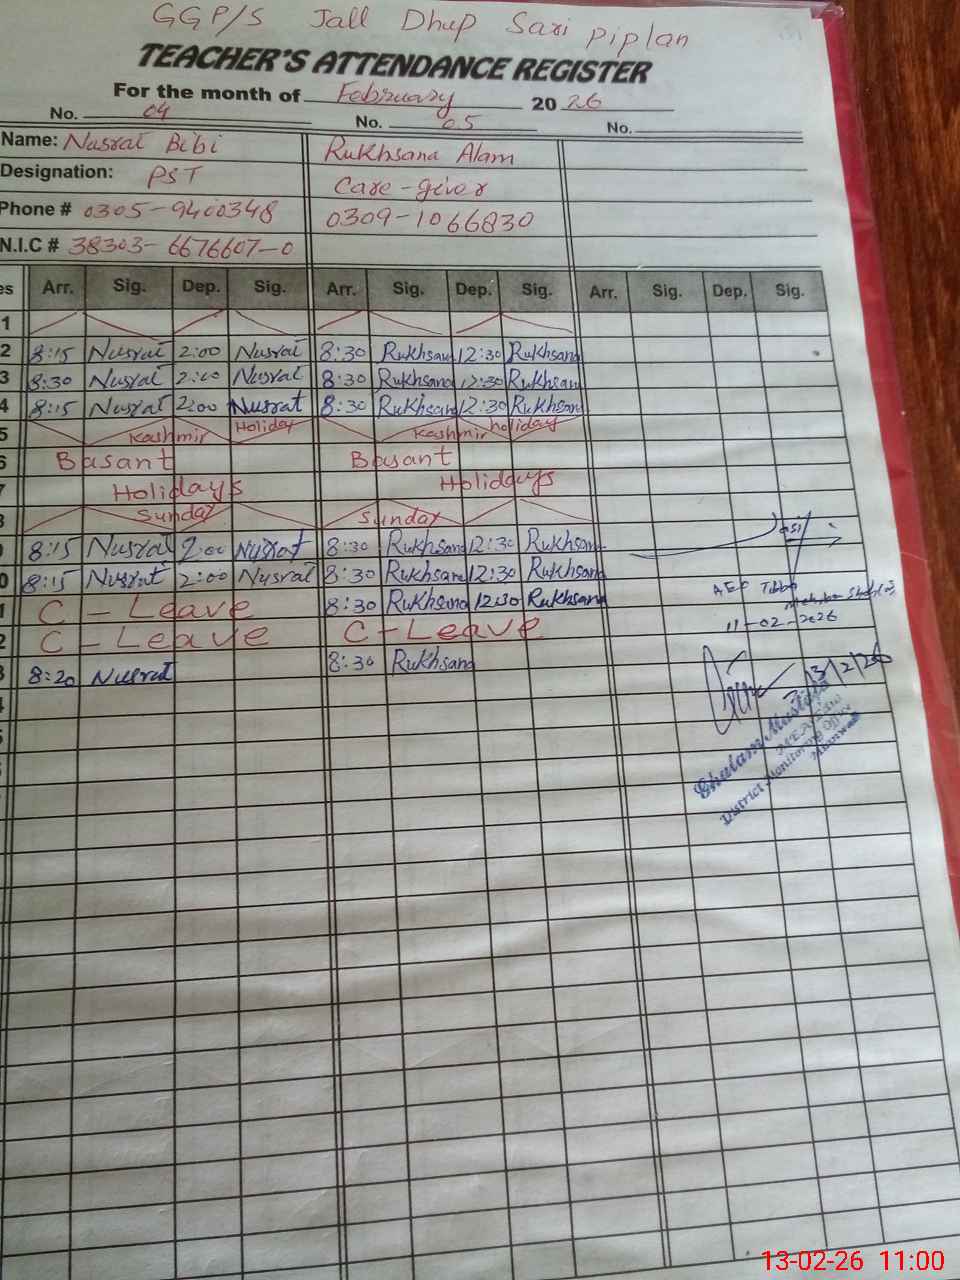 GGP/S Jall Dhup Sari Piplan
TEACHER'S ATTENDANCE REGISTER
For the month of February 2026
No. 04 No. 05 No.
Name: Nusrat Bibi Rukhsana Alam
Designation: PST Care-giver
Phone # 0305-9400348 0309-1066830
N.I.C # 38303-6676607-0
es Arr. Sig. Dep. Sig. Arr. Sig. Dep. Sig. Arr. Sig. Dep. Sig.
1
2 8:15 Nusrat 2:00 Nusrat 8:30 Rukhsana 12:30 Rukhsana
3 8:30 Nusrat 2:00 Nusrat 8:30 Rukhsana 12:30 Rukhsana
4 8:15 Nusrat 2:00 Nusrat 8:30 Rukhsana 12:30 Rukhsana
5 Kashmir Holiday Kashmir holiday
6 Basant Basant
7 Holidays Holidays
8 Sunday Sunday
9 8:15 Nusrat 2:00 Nusrat 8:30 Rukhsana 12:30 Rukhsana
0 8:15 Nusrat 2:00 Nusrat 8:30 Rukhsana 12:30 Rukhsana
1 C-Leave 8:30 Rukhsana 12:30 Rukhsana
2 C-Leave C-Leave
3 8:20 Nusrat 8:30 Rukhsana
AEO
11-02-2026
13/2/26
Ghulam Mustafa
MEA
District Monitoring Office
Mianwali
13-02-26 11:00